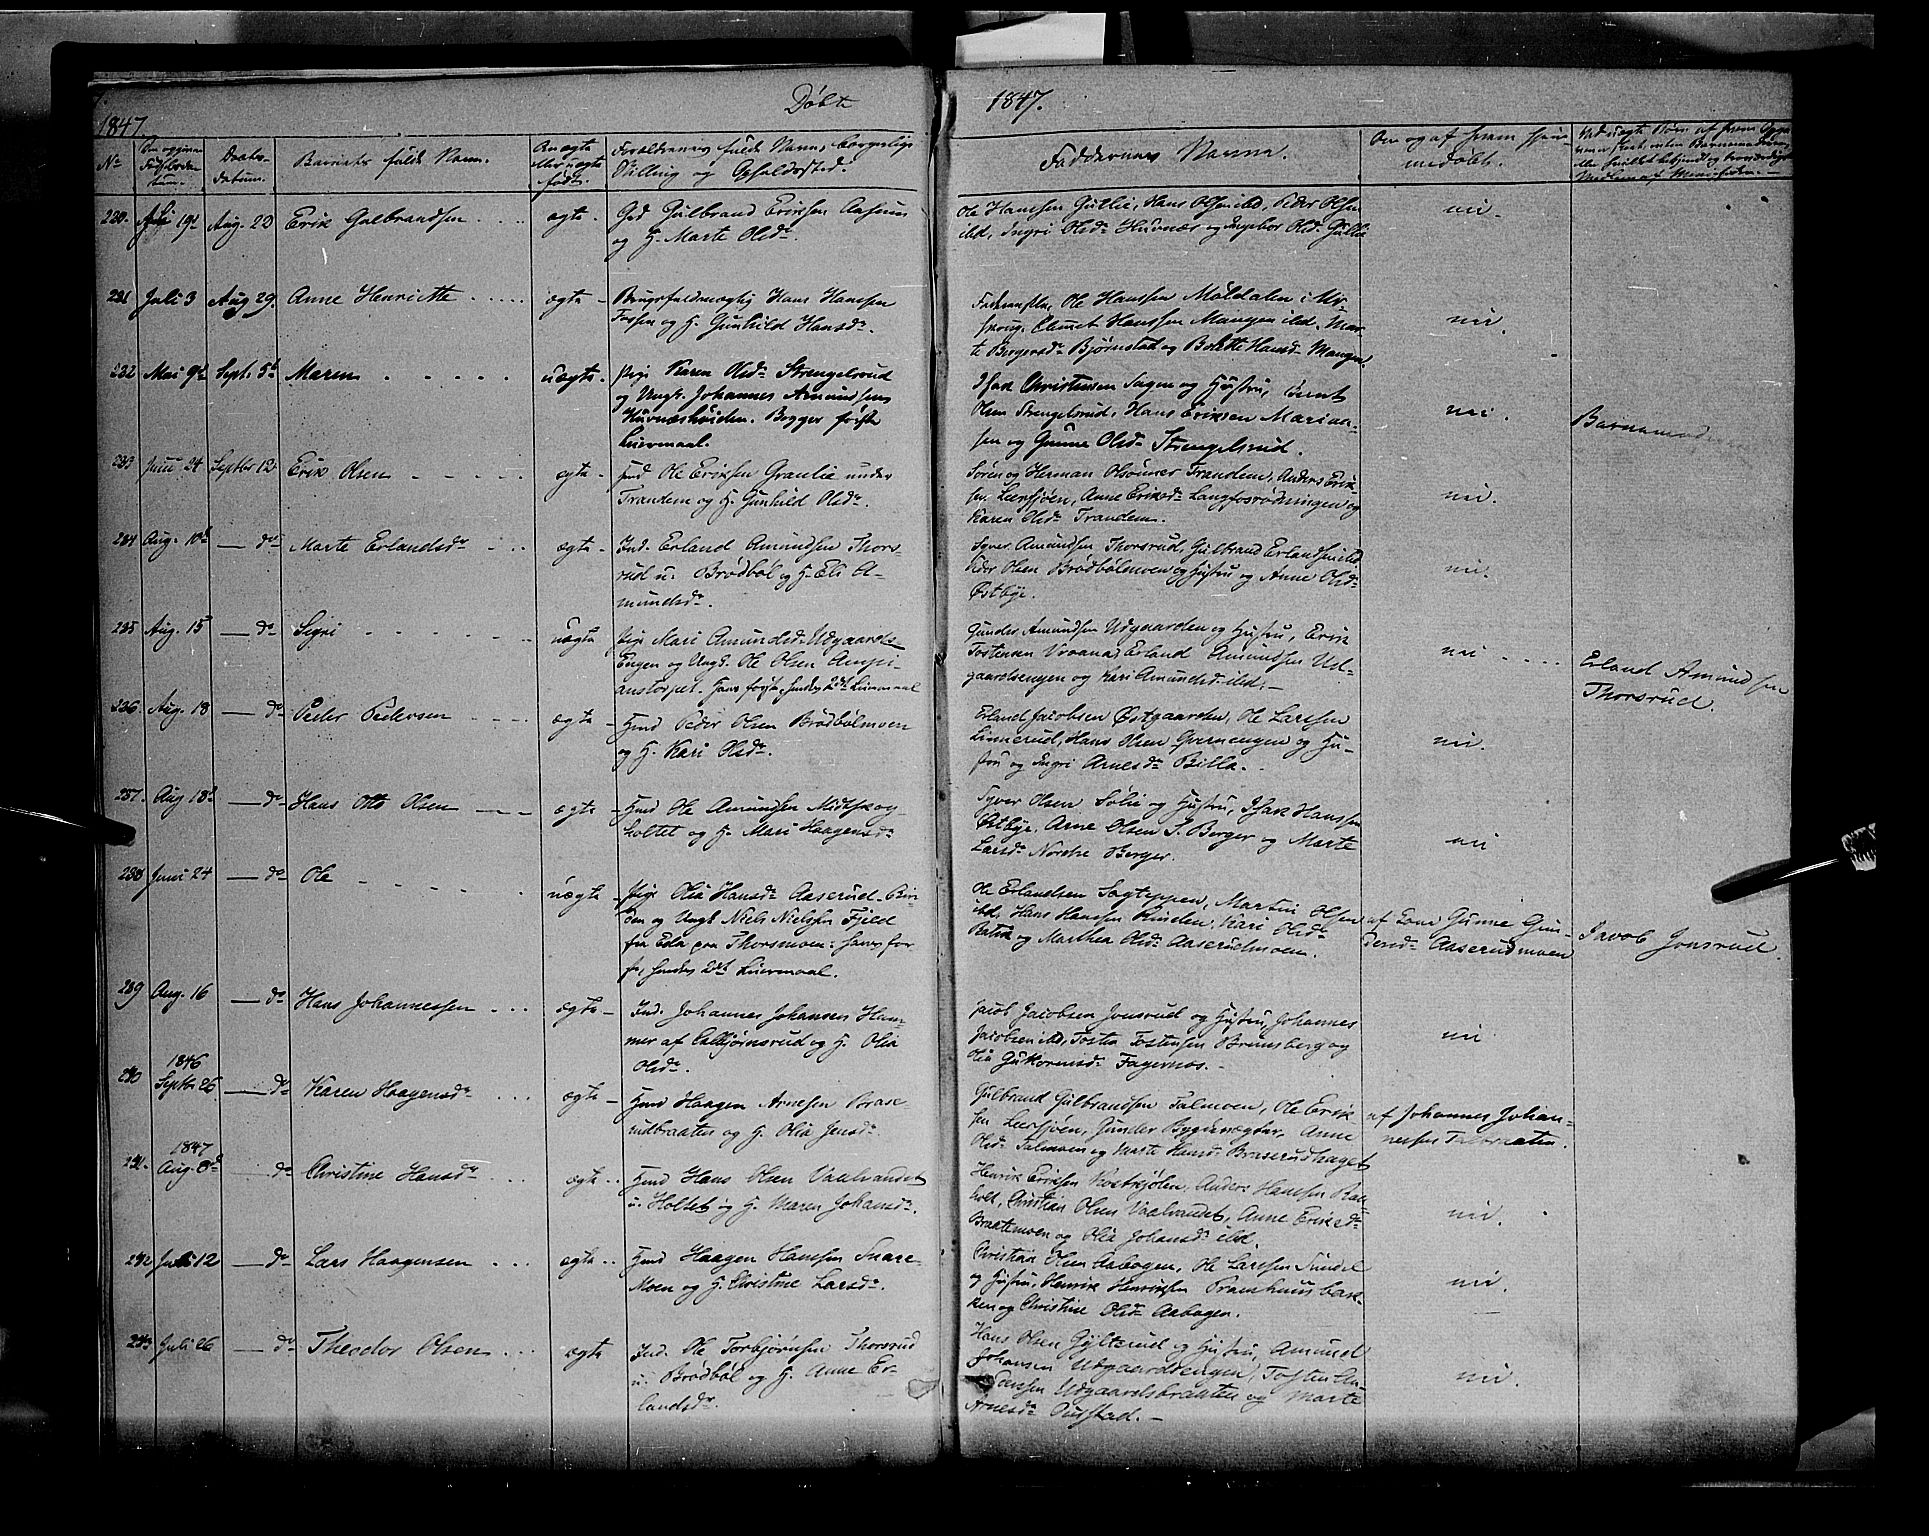 Døbte 1847.
1847.
No
Den opgivne Fødselsdatum.
Daabsdatum.
Barnets fulde Navn.
Om ægte eller uægte født.
Forældrenes fulde Navn, borgerlige Stilling og Opholdssted.
Faddernes Navne.
Om og af hvem hjemmedøbt.
230. Juli 19d Aug. 29 Erik Gulbrandsen . . . . ægte -
Gd Gulbrand Eriksen Aasum
og H. Marte Olsdr.
Ole Hanssen Gullie, Hans Olsen ibd, Peder Olsen
ibd, Ingri Olsdr Huvnæs og Ingebor Olsdr Gullie
nei.
231 Juli 3 Aug 29. Anne Henriette . . . . . ægte -
Brugsfuldmægtig Hans Hanssen
Fossen og H. Gunhild Hansdr.
Faderen selv, Ole Hanssen Møldalen i Ur-
skoug, Hanssen Mangen ibd, Mar-
te Bergersdr Bjørnstad og Bolette Hansdr Mangen.
nei.
232 Mai 9d Sept. 5t Maren . . . . . uægte -
Pige Karen Olsdr Strengelsrud
og Ungk. Johannes Amundsen
Huvnæshøiden. Begges første
Leiermaal.
Isak Christensen Sagen og Hustru, Bernt
Olsen Strengelsrud, Hans Eriksen Marian-
sen og Gunne Olsdr Strengelsrud.
nei.
Barnemoderen
233 Juni 24 Septbr 12. Erik Olsen . . . . ægte -
Hmd Ole Eriksen Graulie under
Trandem og H. Gunhild Olsdr.
Søren og Herman Olsønner Trandem, Anders Erik-
sen Leersjøen, Anne Eriksdr Langfosrødningen og
Karen Olsdr Trandem.
nei.
234 Aug. 10d — do Marte Erlandsdr . . . ægte -
Ind. Erland Amundsen Thors-
rud u. Brødbøl og H. Eli A-
mundsdr.
Syver Amundsen Thorsrud, Gulbrand Erlandsen ibd
Peder Olsen Brødbølmoen og Hustru og Anne Olsdr
Østbye.
nei.
235 Aug. 15 — do Sigri . . . . . uægte
Pige Mari Amundsdr Udgaards-
Engen og Ungk. Ole Olsen Ampi-
anstorpet. Hans første, hendes 2det Leiermaal
Gunder Amundsen Udgaarden og Hustru, Erik
Tostensen Vraana, Erland Amundsen Ud-
gaardsengen og Kari Amundsdr ibd. -
nei . . . .
Erland Amundsen
Thorsrud.
236. Aug. 18 — do Peder Pedersen . . . . ægte -
Hmd Peder Olsen Brødbølmoen
og H. Kari Olsdr.
Erland Jacobsen Østgaarden, Ole Larssen
Linnerud, Hans Olsen Qvernengen og Hu-
stru og Ingri Arnesdr Billa.
nei.
237. Aug 18d — do Hans Otto Olsen — — ægte -
Hmd Ole Amundsen Midtskog-
holtet og H. Mari Haagensdr
Syver Olsen Sølie og Hustru, Isak Hanssen
Østbye, Arne Olsen S. Berger og Marte
Larsdr Nordre Berger.
nei
238 Juni 24 — do Ole . . . . . uægte
Pige Olia Hansdr Aaserud-Rin-
den og Ungk Niels Nielssen Fjeld
fra Eda pra Thorsmoen: hans før-
ste, hendes 2det Leiermaal.
Ole Erlandsen Sagteppen, Martin Olsen
ibd, Hans Hanssen Rinden, Kari Olsdr
og Marthea Olsdr Aaserudmoen.
af Enke Gunne Gun-
dersdr Aaserudmoen
Jacob Jonsrud.
239 Aug. 16 — do Hans Johannessen . . . ægte -
Ind. Johannes Johansen Ham-
mer af Eskbjørnsrud og H. Olia
Olsdr.
Jacob Jacobsen Jonsrud og Hustru, Johannes
Jacobsen ibd, Tosten Tostensen Brunsberg og
Olia Gutormsdr Fagernæs. -
nei
240 1846 Septbr 26 — do Karen Haagensdr . . . ægte -
Hmd Haagen Arnesen Brase-
rudbraaten og H. Olia Jensdr.
Gulbrand Gulbrandsen Talmoen, Ole Erik-
sen Leersjøen, Gunder Bygdevægter, Anne
Olsdr Talmoen og Marte Hansdr Braserudhaget
af Johannes Johan-
nessen Talbraaten.
241. 1847 Aug. 8d — do Christine Hansdr . . . ægte . .
Hmd Hans Olsen Vaalvandet
u. Holtet og H. Maren Johansdr.
Henrik Eriksen Kostrhjølen, Anders Hanssen Raa-
holt, Christian Olsen Vaalvandet, Anne Eriksdr
Braatemoen og Olia Johansdr ibd.
nei.
242 Juli 12 — do Lars Haagensen . . . ægte . .
Hmd Haagen Hanssen Snare-
Moen og H. Christine Larsdr.
Christian Olsen Aabogen, Ole Larssen Sundet
og Hustru, Henrik Henriksen Pramhuusbak-
ken og Christine Olsdr Aabogen.
nei.
243 Juli 26 — do Theodor Olsen . . . ægte
Ind. Ole Torbjørnsen Thorsrud
u. Brødbøl og H. Anne Er-
landsdr.
Hans Olsen Gylterud og Hustru, Amund
Johansen Udgaardsengen, Tosten Am-
Udgaardsbraaten og Marte
Arnesdr Pustad. -
nei.